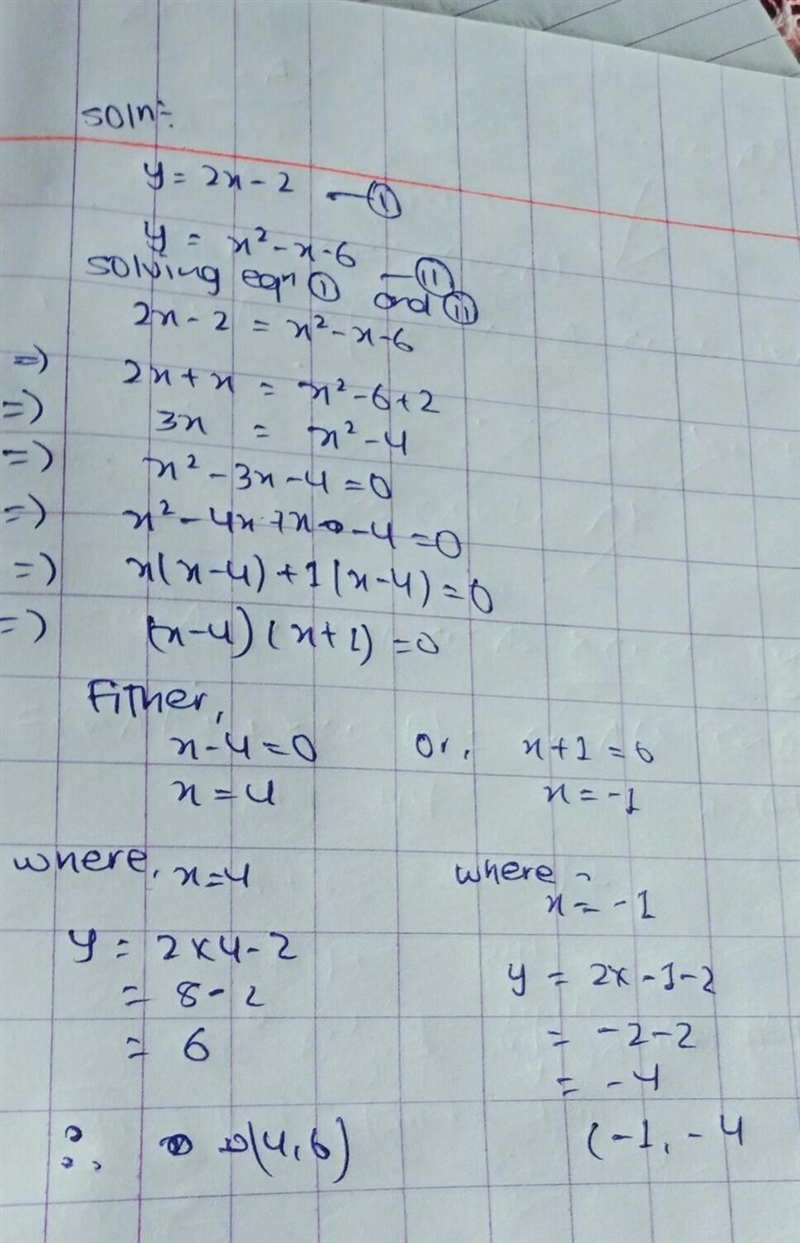 Soln:-
y = 2x - 2 —①
y = x² - x - 6 —⑪
Solving eqn ① and ⑪
2x - 2 = x² - x - 6
=) 2x + x = x² - 6 + 2
=) 3x = x² - 4
=) x² - 3x - 4 = 0
=) x² - 4x + x - 4 = 0
=) x(x-4) + 1(x-4) = 0
=) (x-4) (x+1) = 0
Either,
x - 4 = 0 Or, x + 1 = 0
x = 4 x = -1
where, x = 4 where,
x = -1
y = 2×4 - 2 y = 2x - 1 - 2
= 8 - 2 = -2 - 2
= 6 = -4
∴ (4,6) (-1, -4